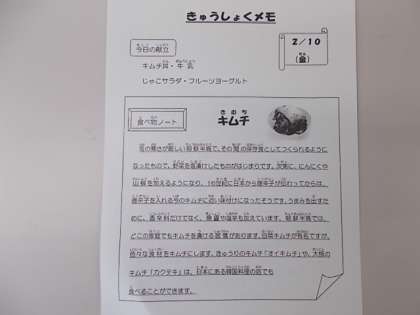 きゅうしょくメモ
2/10
(金)
今日の献立
キムチ丼・牛乳
じゃこサラダ・フルーツヨーグルト
食べ物ノート
キムチ
冬の寒さが厳しい朝鮮半島で、その冬の保存食としてつくられるように
なったもので、野菜を塩漬けしたものがはじまりです。次第に、にんにくや
山椒を加えるようになり、16世紀に日本から唐辛子が伝わってからは、
唐辛子を入れる今のキムチに近い味付けになったそうです。うまみを出すた
めに、香辛料だけでなく、魚醤や塩辛も加えています。朝鮮半島では、
どこの家庭でもキムチを漬ける習慣があります。白菜キムチが有名ですが、
色々な食材をキムチにします。きゅうりのキムチ「オイキムチ」や、大根の
キムチ「カクテキ」は、日本にある韓国料理の店でも
食べることができます。